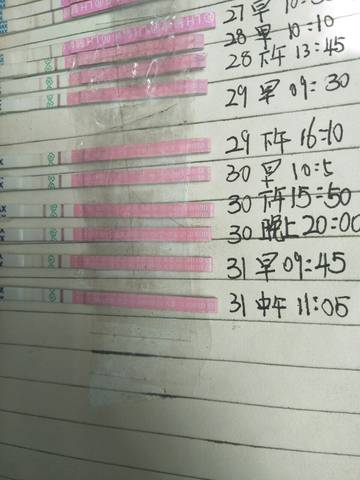 27 早 10:
28 早 10:10
28 下午 13:45
29 早 09:30
29 下午 16:10
30 早 10:5
30 下午 15:50
30 晚上 20:00
31 早 09:45
31 中午 11:05